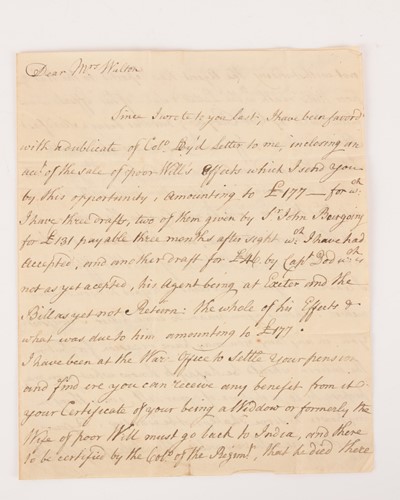 Dear Mrs Walton
Since I wrote to you last, I have been favord
with a dublicate of Colo. Letter to me, inclosing an
acct of the sale of poor Will's Effects which I send you
by this opportunity, amounting to £177 — for wch
I have three drafts, two of them given by Sr John Burgoin
for £131 payable three months after sight wch I have had
Accepted, and another draft for £46 by Capt Dod wch is
not as yet acepted, his Agent being at Exeter and the
Bill as yet not Return: the whole of his Effects &
what was due to him amounting to £177.
I have been at the War Office to Settle your pension
and find ere you can receive any benefit from it
your Certificate of your being a Widdow or formerly the
Wife of poor Will must go back to India, and there
to be certified by the Colo. of the Regimt, that he died there